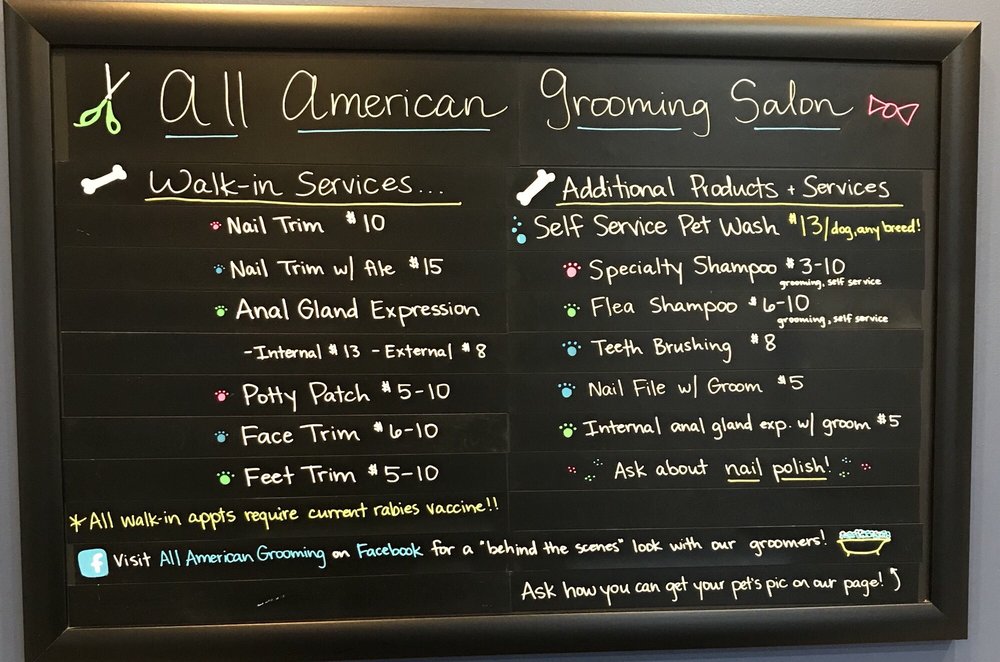 All American Grooming Salon
Walk-in Services...
Nail Trim $10
Nail Trim w/ file $15
Anal Gland Expression
-Internal $13 -External $8
Potty Patch $5-10
Face Trim $6-10
Feet Trim $5-10
*All walk-in appts require current rabies vaccine!!
Additional Products + Services
Self Service Pet Wash $13/dog, any breed!
Specialty Shampoo $3-10
grooming, self service
Flea Shampoo $6-10
grooming, self service
Teeth Brushing $8
Nail File w/ Groom $5
Internal anal gland exp. w/ groom $5
Ask about nail polish!
f Visit All American Grooming on Facebook for a "behind the scenes" look with our groomers!
Ask how you can get your pet's pic on our page!